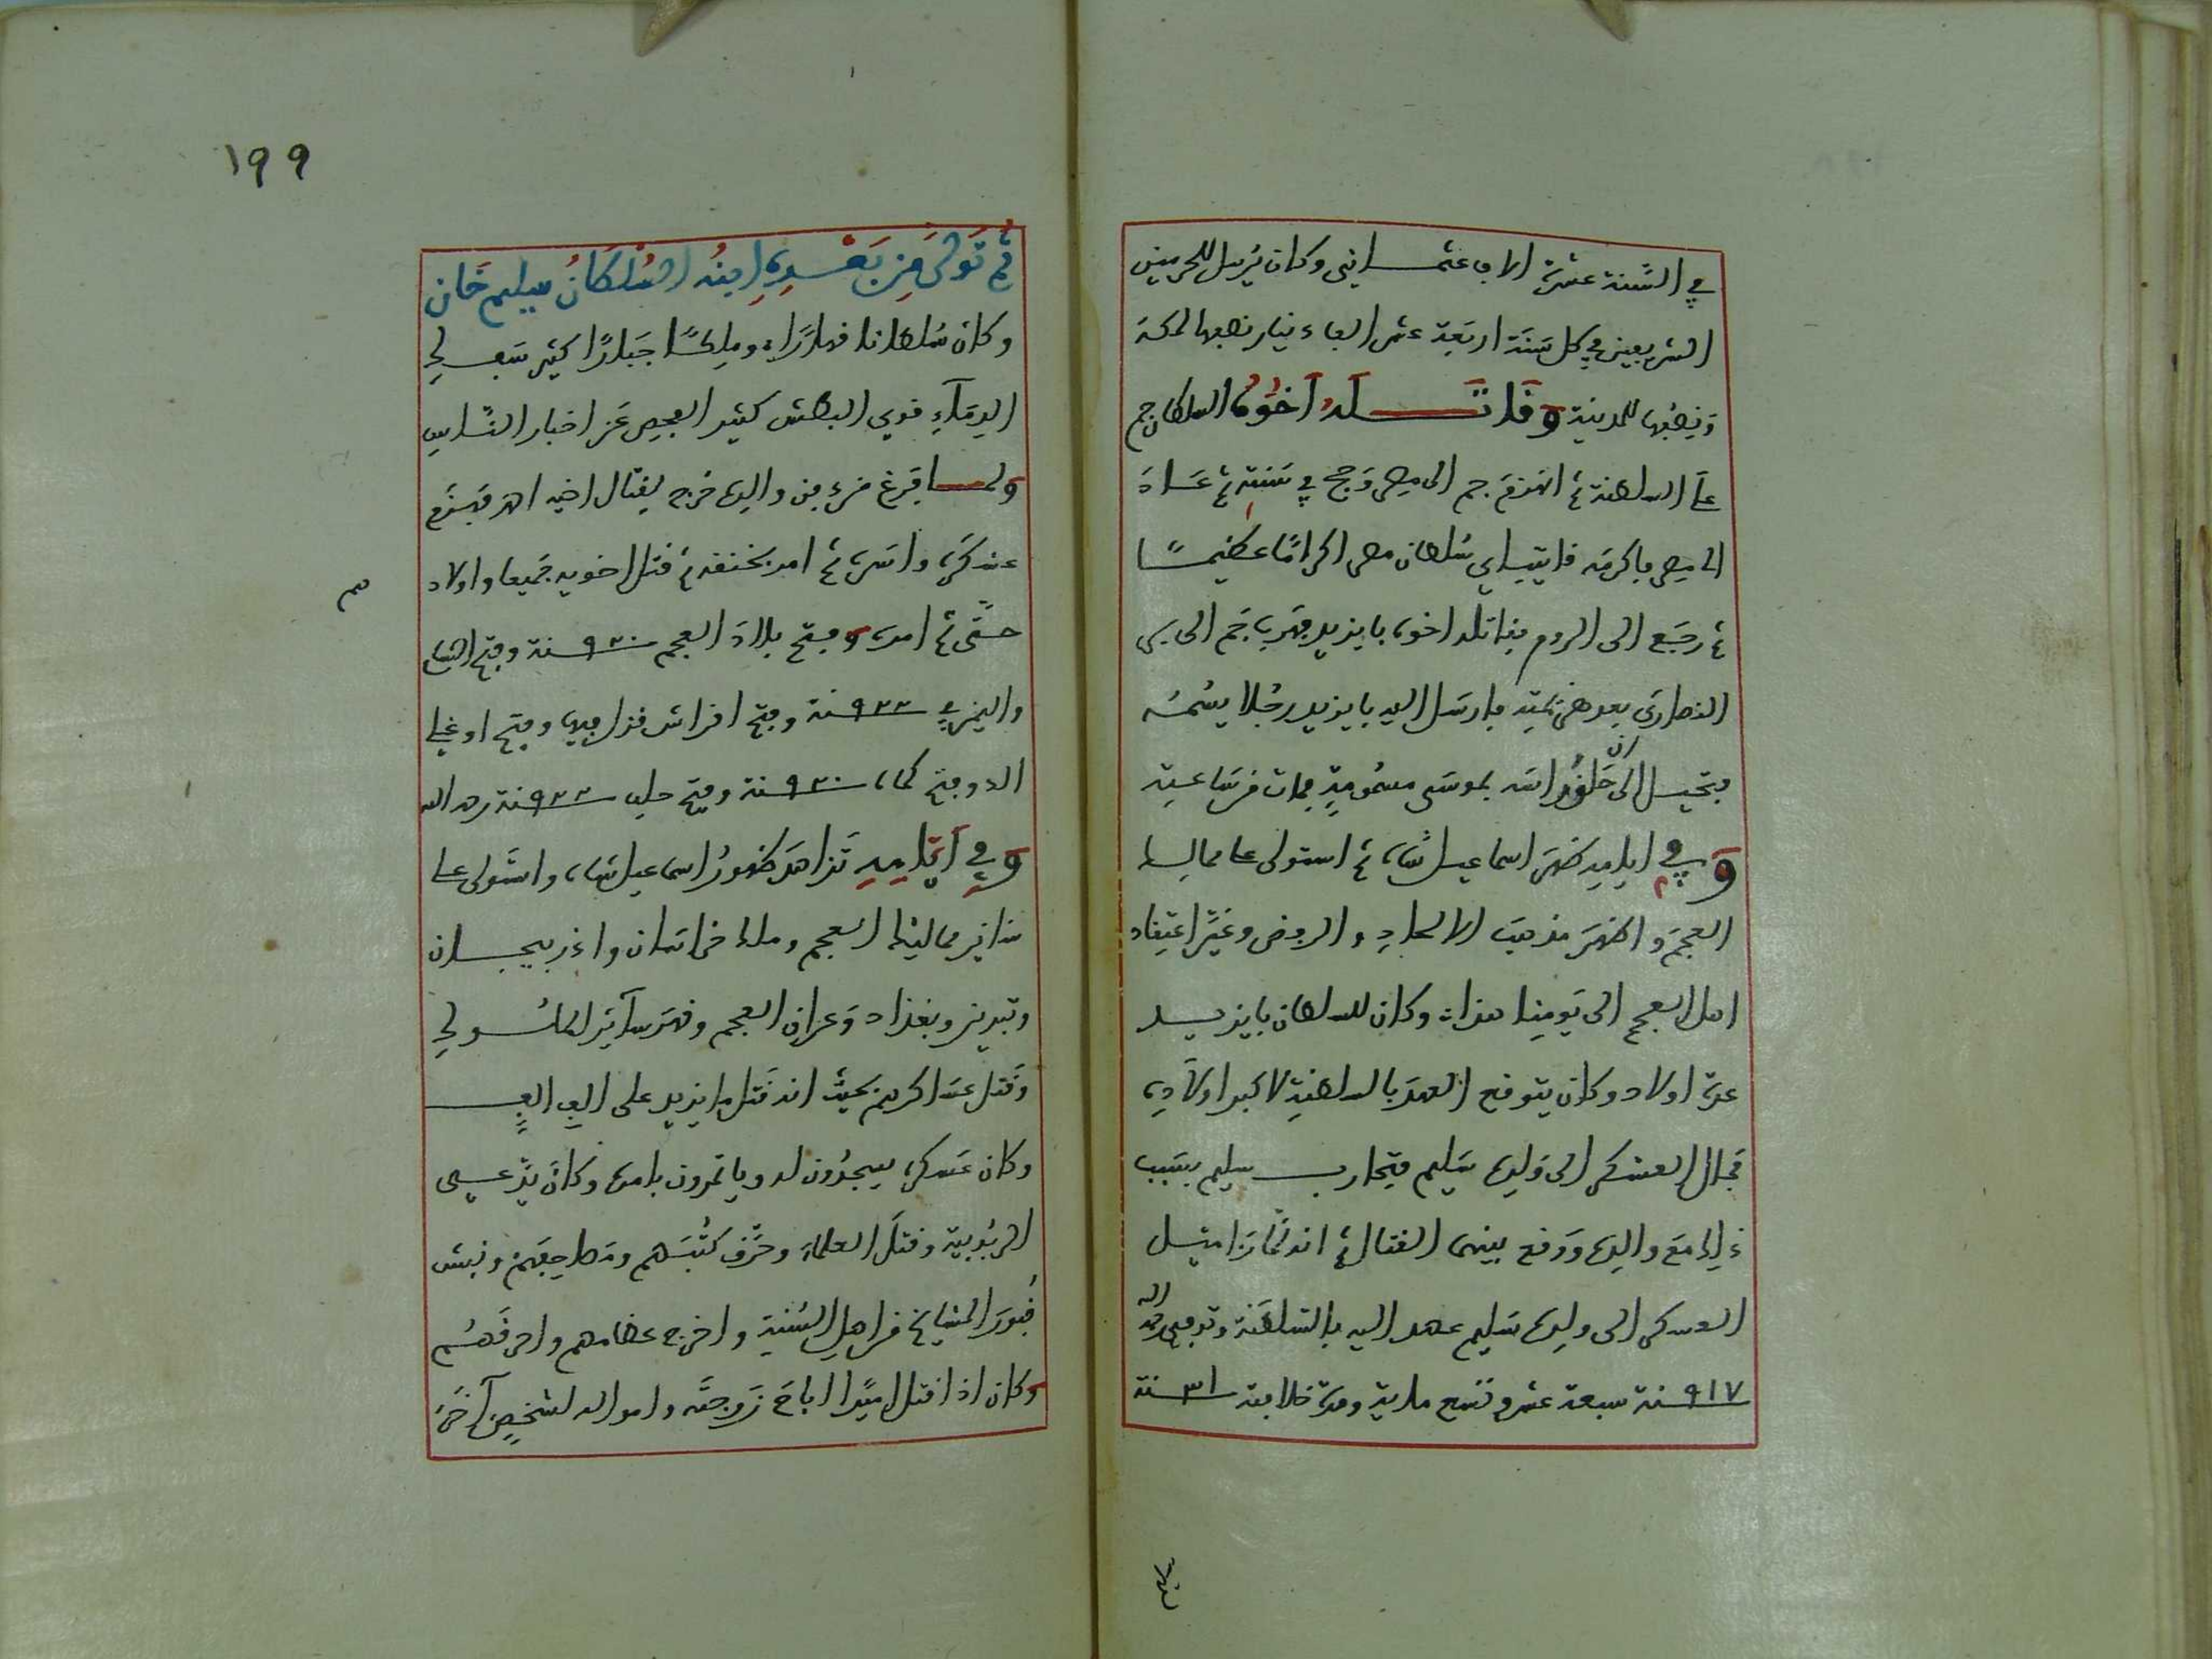 في السنة عشرة الاف عثماني وكان يرسل للحرمين
الشريفين في كل سنة اربعة عشر الف دينار نصفها لمكة
ونصفها للمدينة وقاتله اخوه السلطان جم
على السلطنة ثم انهزم جم الى مصر وحج في سنته ثم عاد
الى مصر فاكرمه قايتباي سلطان مصر اكراما عظيما
ثم رجع الى الروم فقاتله اخوه بايزيد فهرب جم الى بر
النصارى بعد هزيمته فارسل اليه بايزيد رجلا يسمه
فتحيل الى ان حلق راسه بموسى مسمومة فمات من ساعته
وفي ايامه ظهر اسماعيل شاه ثم استولى على ممالك
العجم واظهر مذهب الالحاد والرفض وغير اعتقاد
اهل العجم الى يومنا هذا وكان للسلطان بايزيد
عدة اولاد وكان يتوقع العهد بالسلطنة لاكبر اولاده
فمال العسكر الى ولده سليم فتحارب سليم بسبب
ذلك مع والده ووقع بينهما القتال ثم انه لما را ميل
العسكر الى ولده سليم عهد اليه بالسلطنة وتوفي رحمه الله
سنة ٩١٧ سبعة عشر وتسع ماية ومدة خلافته سنة ٣١
١٩٩
ثم تولى من بعده ابنه السلطان سليم خان
وكان سلطانا قهارا وملكا جبارا كثير سفك
الدماء قوي البطش كثير الفحص عن اخبار الناس
ولما فرغ من دفن والده خرج لقتال اخيه احمد فهزم
عسكره واسره ثم امر بخنقه ثم قتل اخويه جميعا واولاد
حتى تم امره وفتح بلاد العجم سنة ٩٢٠ وفتح الشام
واليمن في سنة ٩٢٣ وفتح افراش قزل وفتح اوغلي
وفتح كماه سنة ٩٢٠ وفتح حلب سنة ٩٢٢ رحمه الله
وفي ايامه تزاهد ظهور اسماعيل شاه واستولى على
سائر ممالك العجم وملك خراسان واذربيجان
وتبريز وبغداد وعراق العجم وقهر سائر الملوك
وقتل عساكرهم بحيث انه قتل ما يزيد على الف الف
وكان عسكره يسجدون له وياتمرون بامره وكان يدعي
الربوبية وقتل العلماء وحرق كتبهم ومصاحفهم ونبش
قبور المشايخ من اهل السنة واخرج عظامهم واحرقهم
وكان اذا قتل اميرا اباح زوجته وامواله لشخص آخر